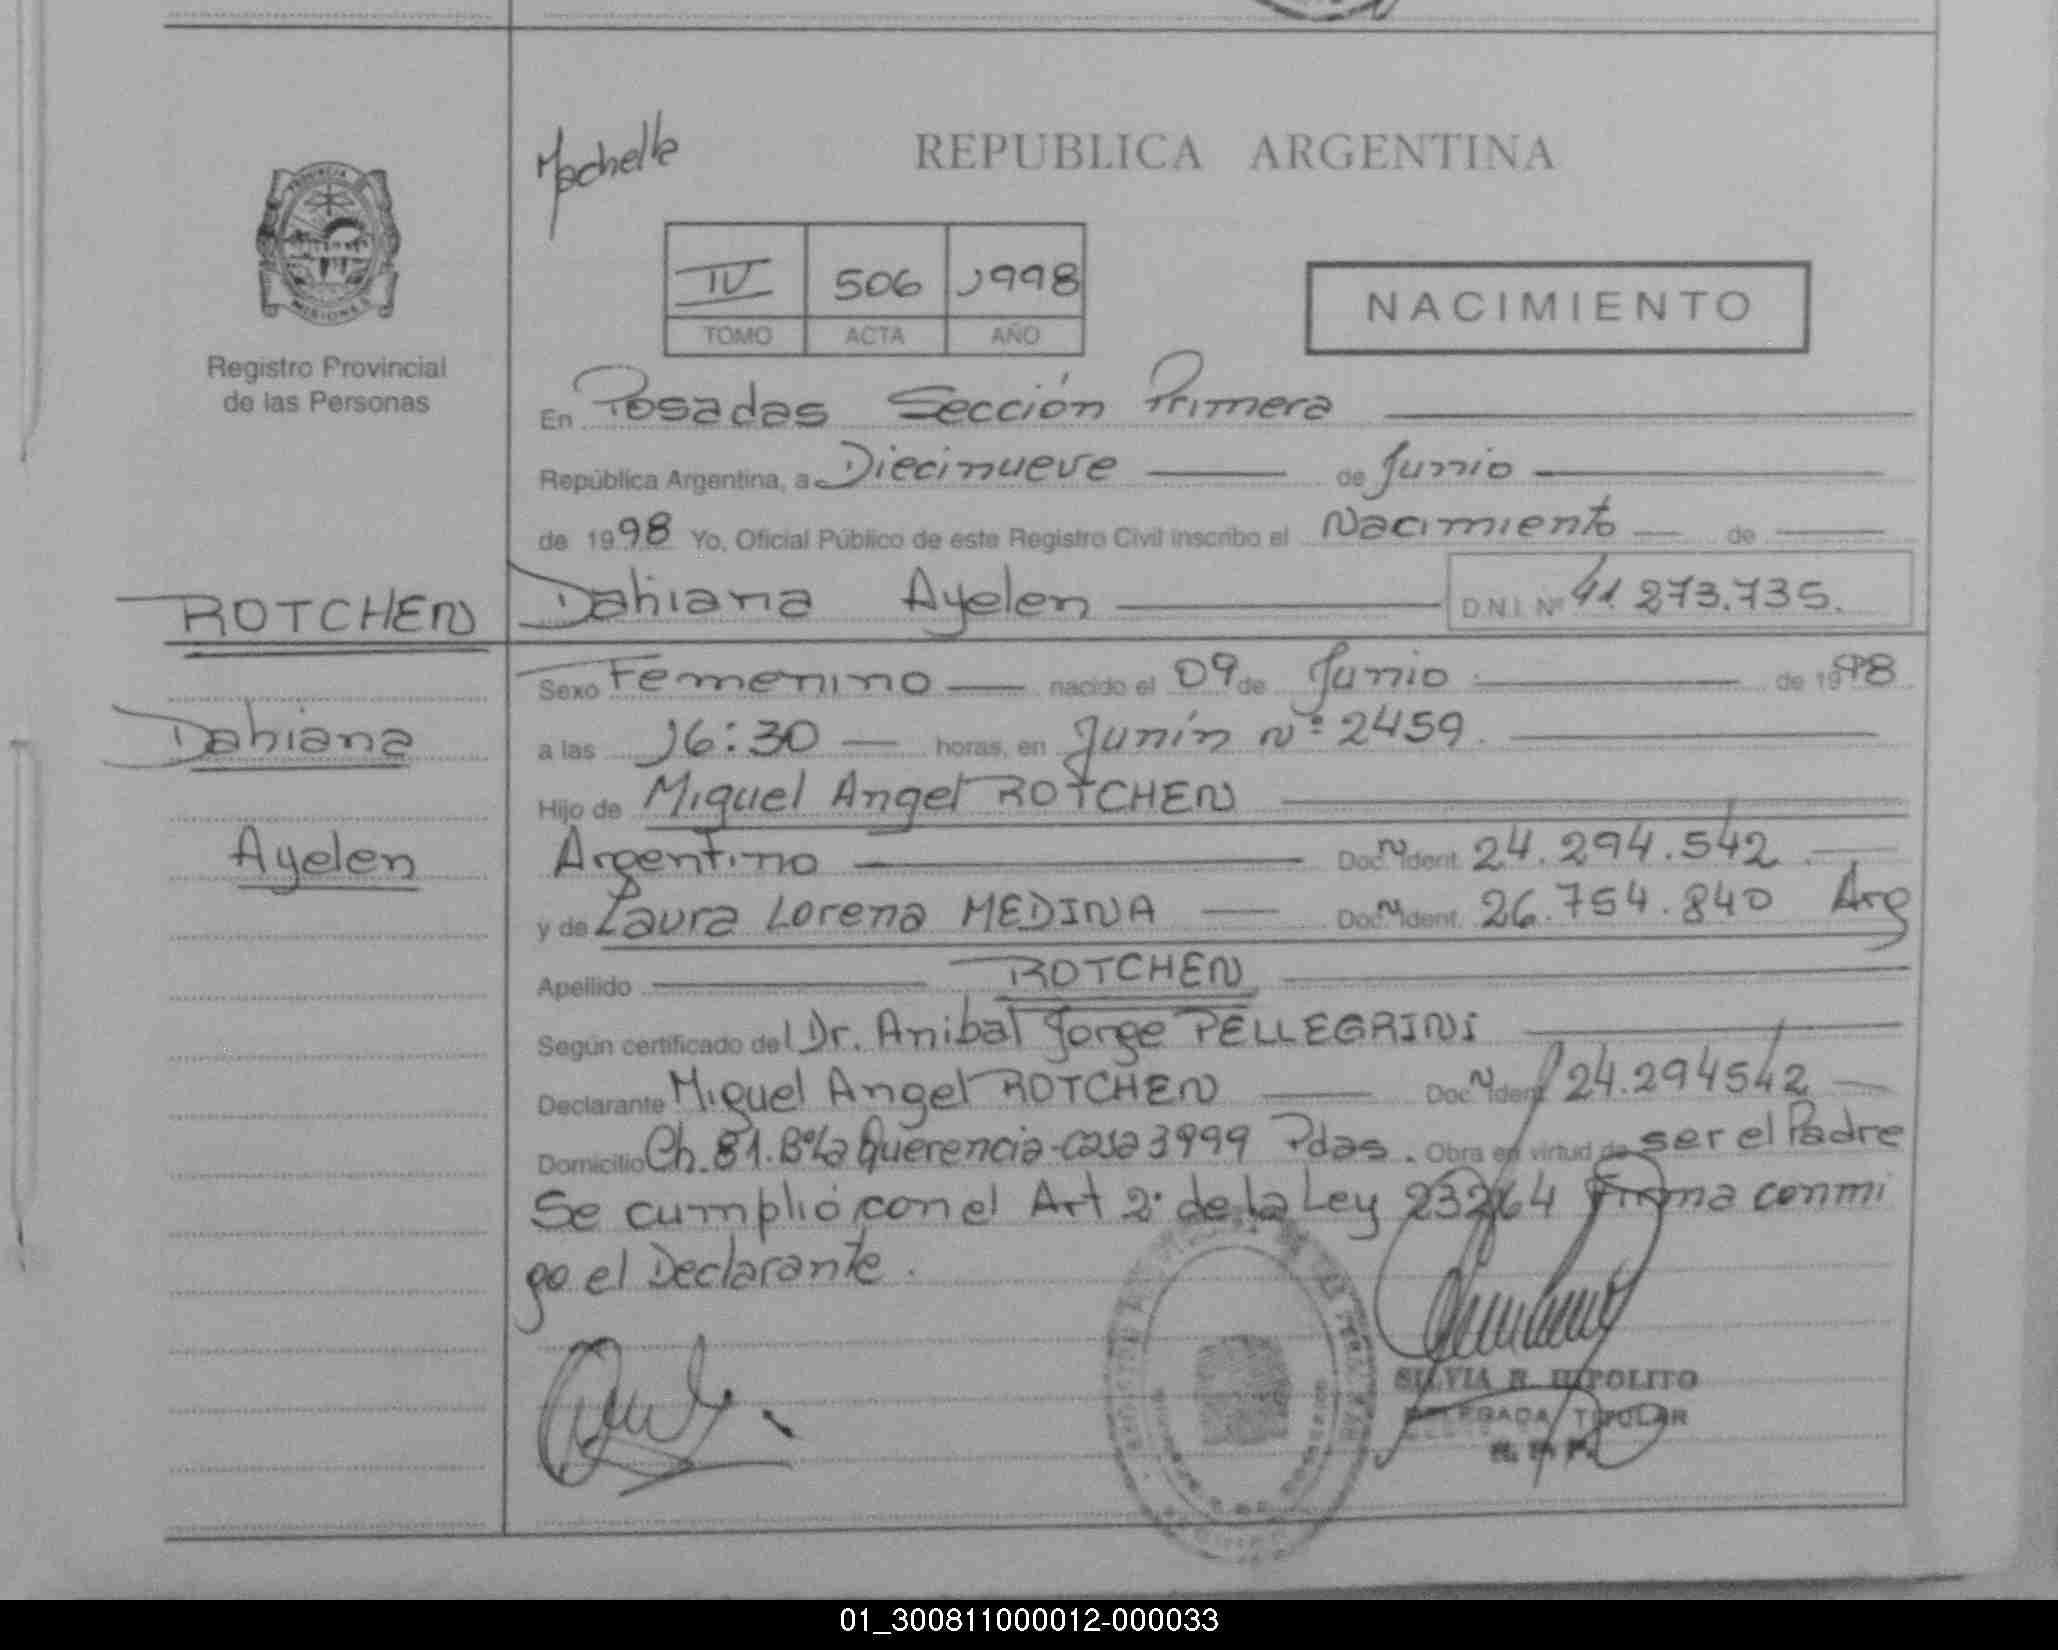 REPUBLICA ARGENTINA
PROVINCIA
MISIONES
Registro Provincial
de las Personas
IV 506 1998
TOMO ACTA AÑO
NACIMIENTO
En Posadas Sección Primera
República Argentina, a Diecinueve de Junio
de 1998 Yo, Oficial Público de este Registro Civil inscribo el Nacimiento de
ROTCHEN Dahiana Ayelen D.N.I. Nº 41.273.735.
Sexo Femenino nacido el 09 de Junio de 1998
Dahiana
a las 16:30 horas, en Junín Nº 2459.
Hijo de Miguel Angel ROTCHEN
Ayelen
Argentino Doc. N Ident. 24.294.542
y de Laura Lorena MEDINA Doc. N Ident. 26.754.840 Arg
Apellido ROTCHEN
Según certificado del Dr. Anibal Jorge PELLEGRINI
Declarante Miguel Angel ROTCHEN Doc. N Ident 24.294542
Domicilio Ch. 81. Bº La Querencia-casa 3999 Pdas. Obra en virtud de ser el Padre
Se cumplió con el Art 2º de la Ley 23264 Firma conmi
go el Declarante.
SILVIA R. HIPOLITO
DELEGADA TITULAR
01_300811000012-000033